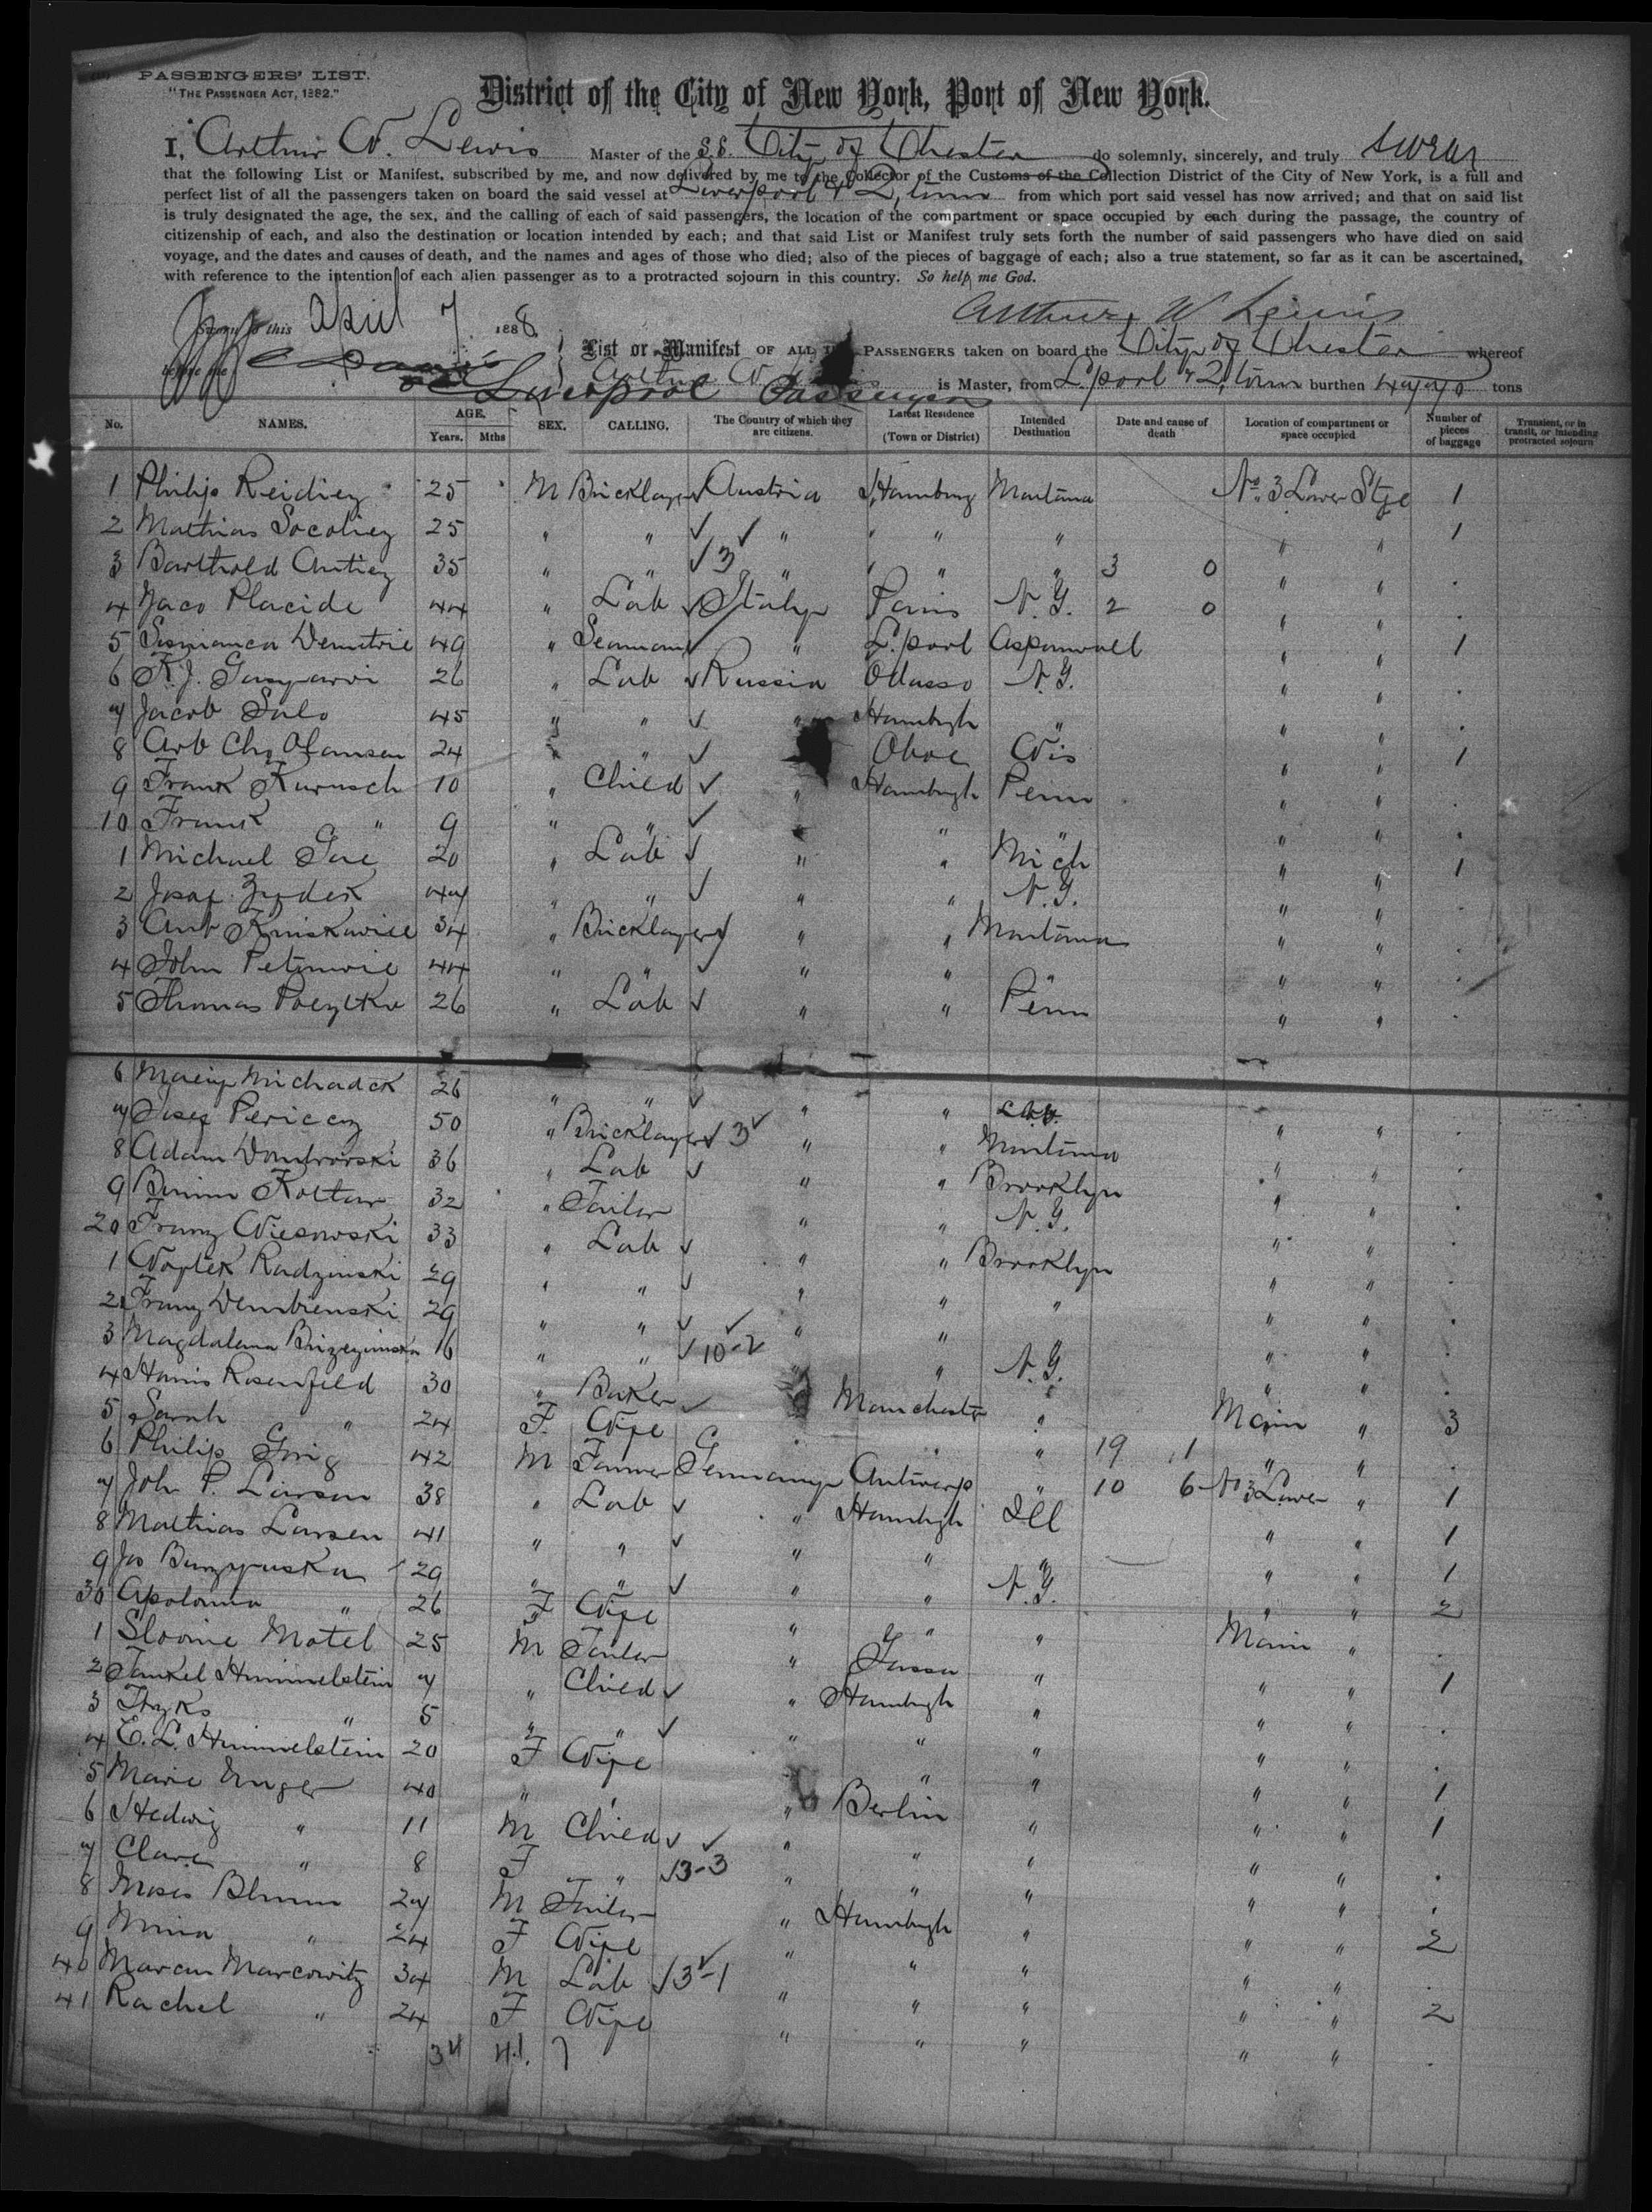 PASSENGERS' LIST.
"THE PASSENGER ACT, 1882."
District of the City of New York, Port of New York.
I, Arthur W. Lewis Master of the S.S. City of Chester do solemnly, sincerely, and truly swear
that the following List or Manifest, subscribed by me, and now delivered by me to the Collector of the Customs of the Collection District of the City of New York, is a full and
perfect list of all the passengers taken on board the said vessel at Liverpool & Q.town from which port said vessel has now arrived; and that on said list
is truly designated the age, the sex, and the calling of each of said passengers, the location of the compartment or space occupied by each during the passage, the country of
citizenship of each, and also the destination or location intended by each; and that said List or Manifest truly sets forth the number of said passengers who have died on said
voyage, and the dates and causes of death, and the names and ages of those who died; also of the pieces of baggage of each; also a true statement, so far as it can be ascertained,
with reference to the intention of each alien passenger as to a protracted sojourn in this country. So help me God.
Sworn to this April 7 1888 Arthur W Lewis
before me
List or Manifest OF ALL THE PASSENGERS taken on board the City of Chester whereof
Arthur W. Lewis is Master, from L'pool & Q.town burthen 4770 tons
Liverpool Passengers
No. NAMES. AGE. Years. Mths SEX. CALLING. The Country of which they are citizens. Latest Residence (Town or District) Intended Destination Date and cause of death Location of compartment or space occupied Number of pieces of baggage Transient, or in transit, or intending protracted sojourn
1 Philip 25 M Bricklayer Austria Hamburg Montana No. 3 Lower Stge 1
2 Mathias 25 " " " " " " " 1
3 Barthold 35 " " 3 " " " 3 0 " "
4 Placide 44 " Lab Italy Paris N.Y. 2 0 " "
5 49 " Seaman " L.pool Aspinwall " " 1
6 K.J. 26 " Lab Russia N.Y. " "
7 Jacob Salo 45 " " " Hambgh " " "
8 24 " " Wis " " 1
9 Frank Kurusch 10 " Child " Hambgh Penn " "
10 Frank " 9 " " " " " "
1 Michael 20 " Lab " " Mich " " 1
2 47 " " " " N.Y. " "
3 34 " Bricklayer " " Montana " "
4 John 44 " " " " " "
5 Thomas 26 " Lab " " Penn " "
6 26 " " " " " "
7 50 " Bricklayer 3 " " Montana " "
8 Adam Dombrowski 36 " Lab " " Brooklyn " "
9 32 " Tailor " " N.Y. " "
20 Franz Wiesowski 33 " Lab " " Brooklyn " "
1 Radzinski 29 " " " " " " "
2 Franz Dembienski 29 " " " " " "
3 Magdalena 16 " " 10-2 " " N.Y. " "
4 Harris Rosenfeld 30 " Baker " Manchester " Main " 3
5 Sarah " 24 F. Wife " " 19 1 " "
6 Philip 42 M Farmer Germany Antwerp " 10 6 No 3 Lower " 1
7 John P. Larson 38 " Lab " Hambgh Ill " " 1
8 Mathias Larsen 41 " " " " " " " 1
9 Jos 29 " " " " N.Y. " " 2
30 Apolonia " 26 F Wife " " " Main "
1 Motel 25 M Tailor " " " " 1
2 Jankel Himmelstein 7 " Child " Hambgh " " "
3 " 5 " " " " " " "
4 E. L. Himmelstein 20 F Wife " " " " " 1
5 Marie Unger 40 " " " Berlin " " " 1
6 Hedwig " 11 M Child " " " " "
7 Clara " 8 F " 3-3 " " " " "
8 Moses Blum 27 M Tailor " Hambgh " " " 2
9 Mina " 24 F Wife " " " " "
40 Marcus Marcowitz 34 M Lab 3-1 " " " " " 2
41 Rachel " 24 F Wife " " " " "
34 41. 7